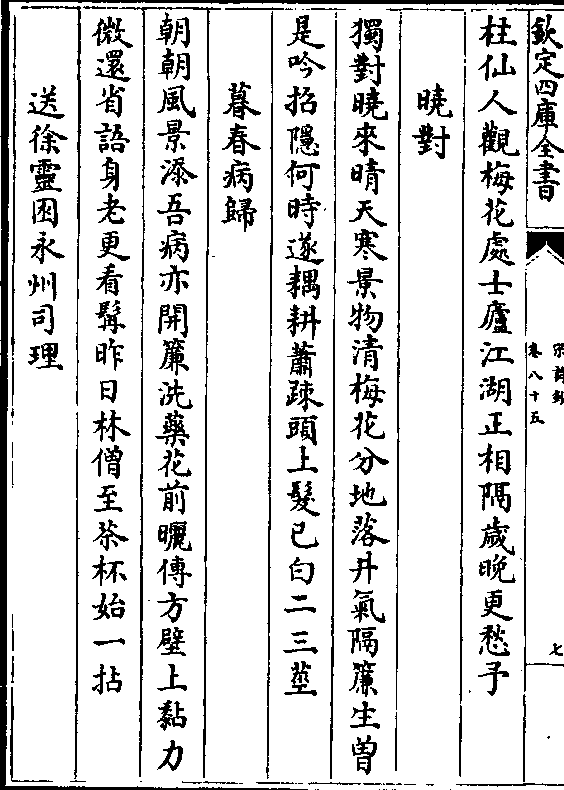 欽定四庫全書
宋詩鈔
卷八十五
七
柱仙人觀梅花處士廬江湖正相隔歲晚更愁予
曉對
獨對曉來晴天寒景物清梅花分地落井氣隔簾生曽
是吟招隱何時遂耦耕蕭疎頭上髮已白二三莖
暮春病歸
朝朝風景添吾病亦開簾洗藥花前曬傳方壁上黏力
微還省語身老更看髯昨日林僧至茶杯始一拈
送徐靈囦永州司理